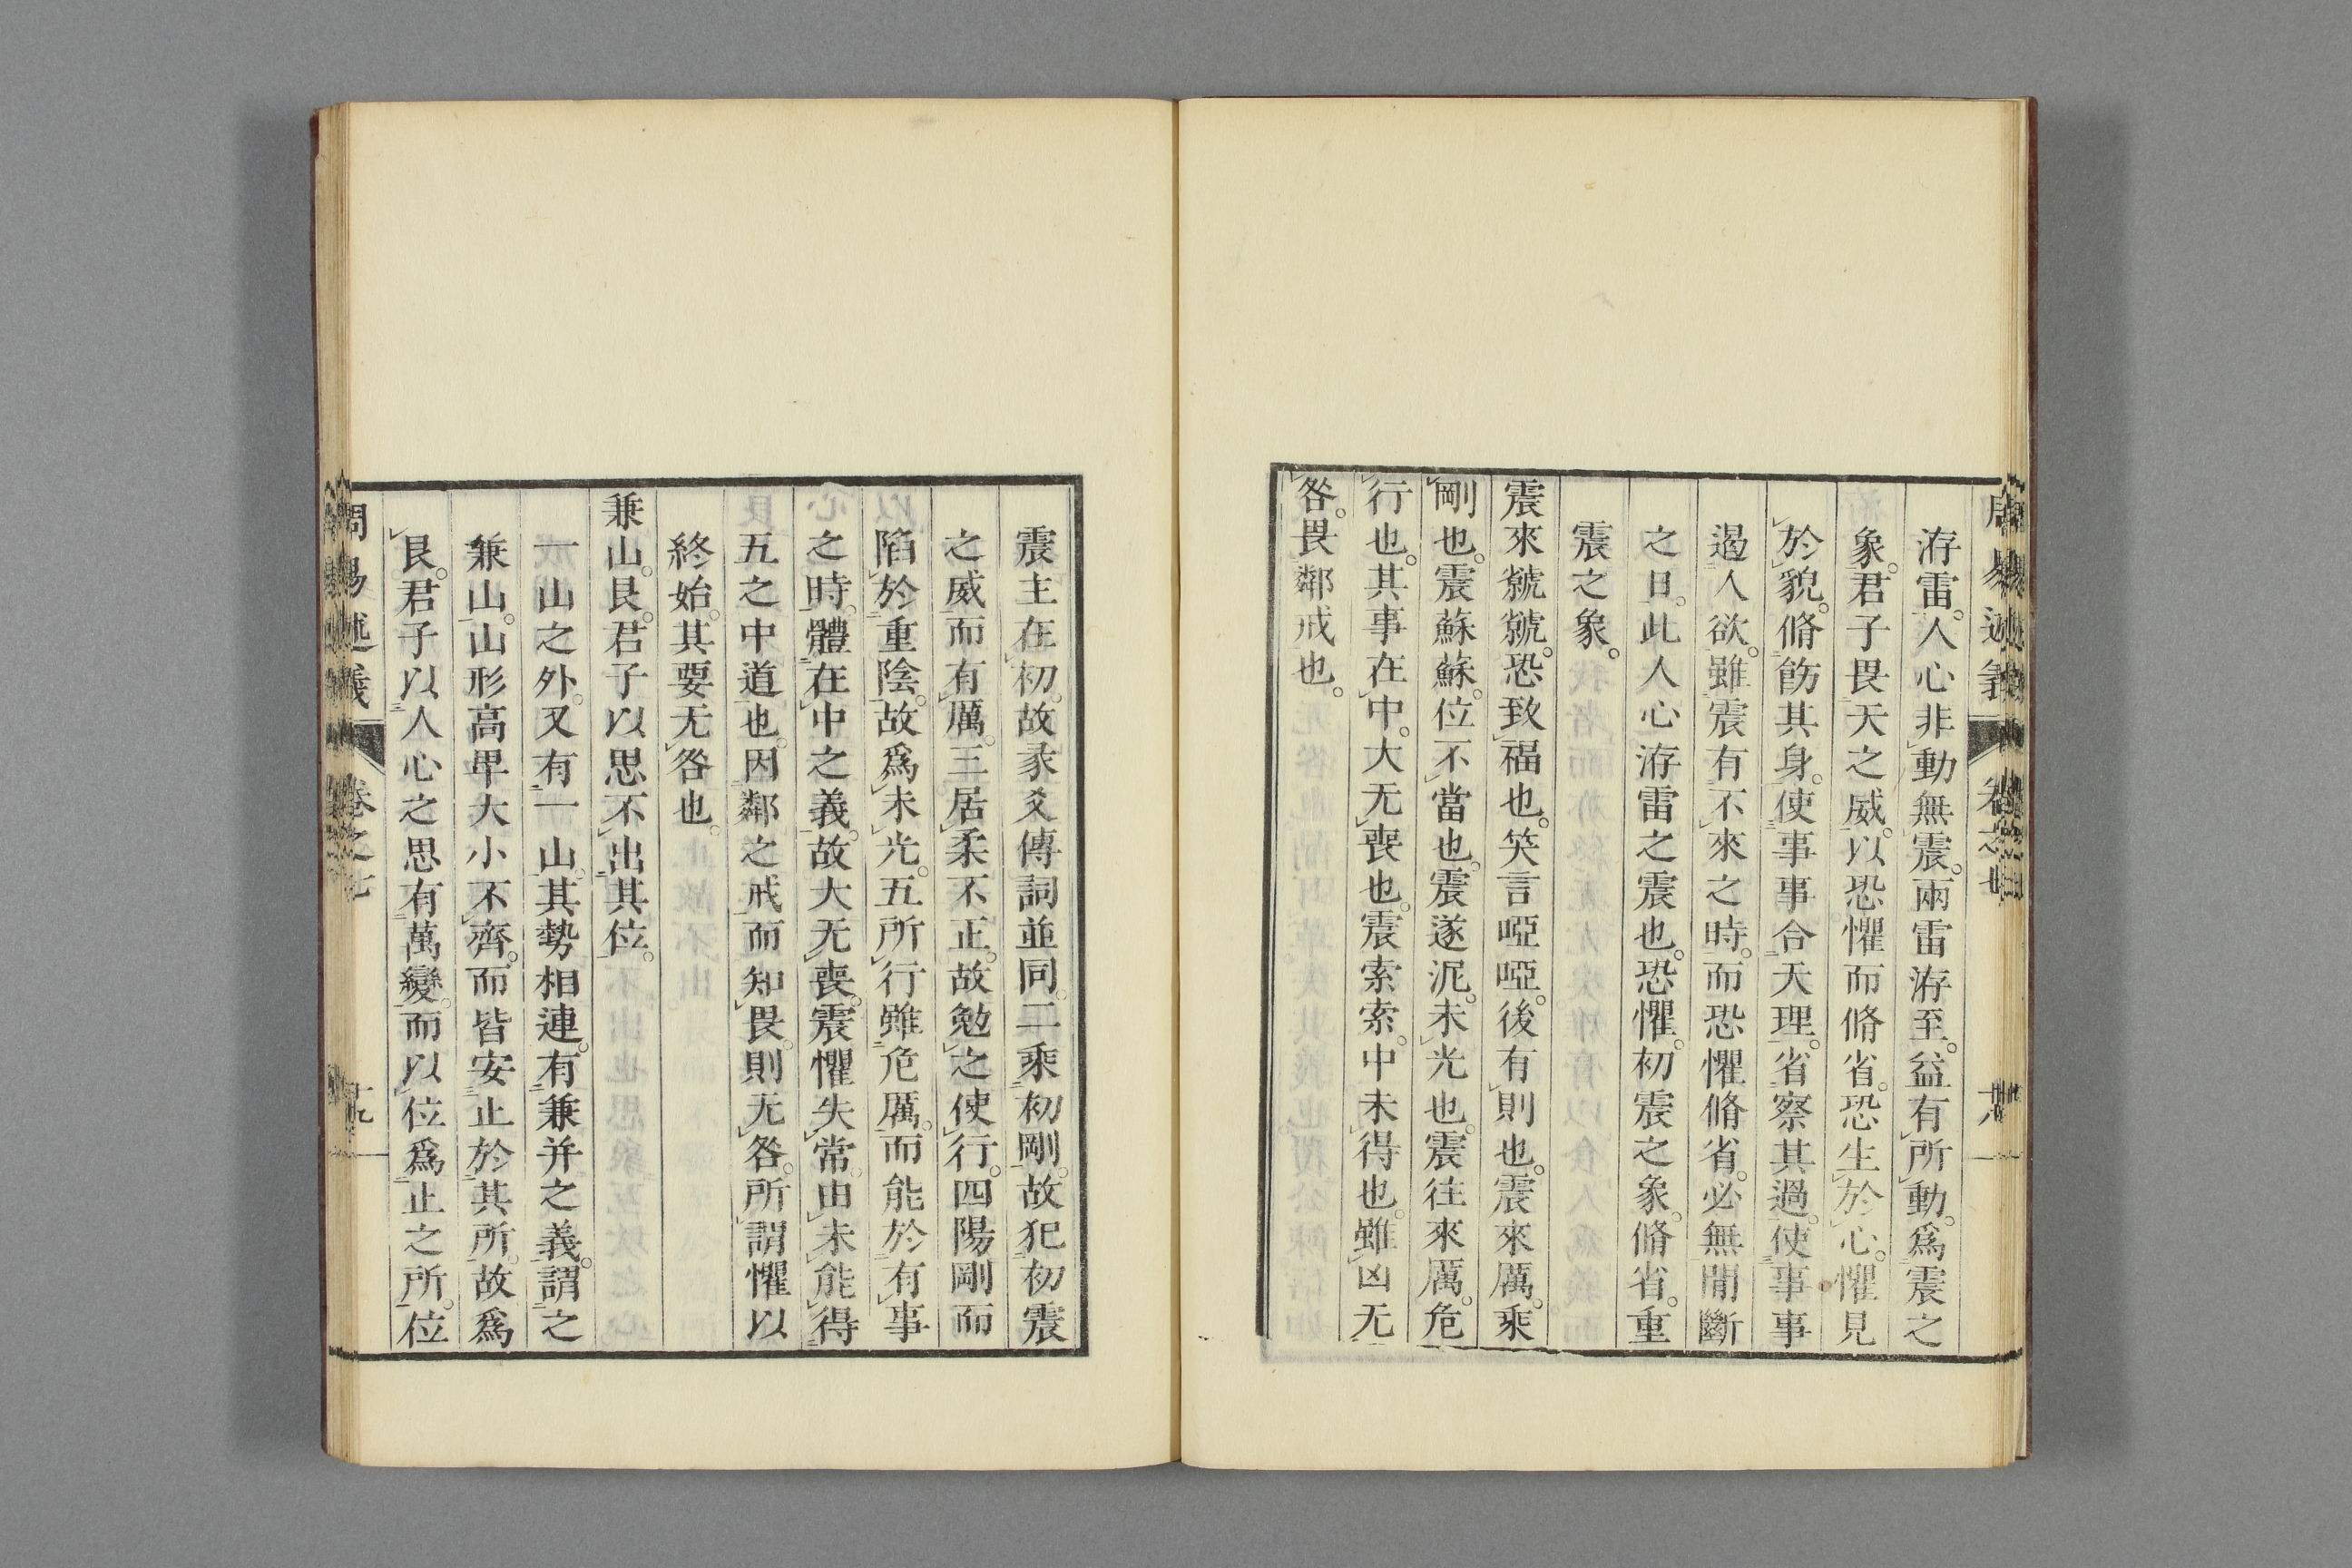 周易述義 卷之七 十八
洊雷。人心非動無震。兩雷洊至。益有所動。爲震之
象。君子畏天之威。以恐懼而脩省。恐生於心。懼見
於貌。脩飭其身。使事事合天理。省察其過。使事事
遏人欲。雖震有不來之時。而恐懼脩省。必無閒斷
之日。此人心洊雷之震也。恐懼。初震之象。脩省。重
震之象。
震來虩虩。恐致福也。笑言啞啞。後有則也。震來厲。乘
剛也。震蘇蘇。位不當也。震遂泥。未光也。震往來厲。危
行也。其事在中。大无喪也。震索索。中未得也。雖凶无
咎。畏鄰戒也。
震主在初。故彖爻傳詞並同。二乘初剛。故犯初震
之威而有厲。三居柔不正。故勉之使行。四陽剛而
陷於重陰。故爲未光。五所行雖危厲。而能於有事
之時。體在中之義。故大无喪。震懼失常。由未能得
五之中道也。因鄰之戒而知畏。則无咎。所謂懼以
終始。其要无咎也。
兼山。艮。君子以思不出其位。
一山之外。又有一山。其勢相連。有兼并之義。謂之
兼山。山形高卑大小不齊。而皆安止於其所。故爲
艮。君子以人心之思有萬變。而以位爲止之所。位
周易述義 卷之七 十九